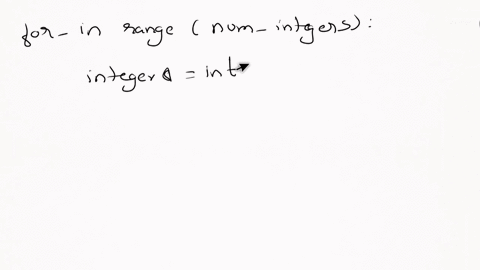 for_in range (num_intgers):
integer = int